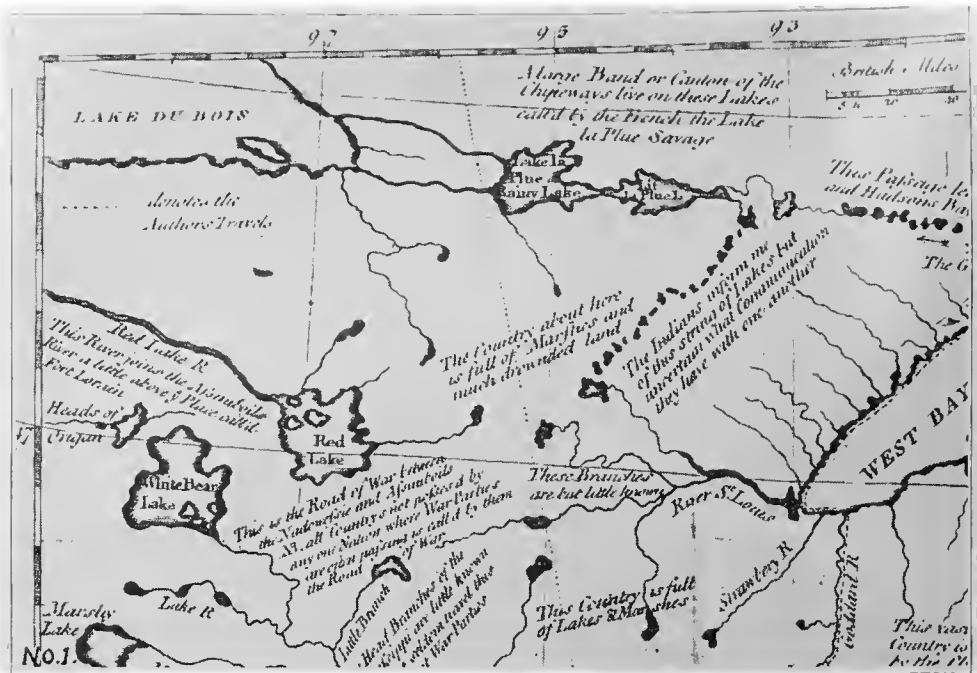 97
95
93
British Miles
5 10 20 30
A large Band or Canton of the
Chipeways live on these Lakes
call'd by the French the Lake
la Plue Savage
LAKE DU BOIS
denotes the
Authors Travels
Lake la
Plue or
Rainy Lake
Lit
la Plue L
This Passage le
and Hudsons Ba
The G
Red Lake R
This River joins the Assiniboils
River a little above ye Place call'd
Fort Lorain
Heads of
Origan
White Bear
Lake
Red
Lake
The Country about here
is full of Marshes and
much drownded land
The Indians inform me
of this string of Lakes but
uncertain what Communication
they have with one another
WEST BAY
This is the Road of War between
the Nadowessie and Assiniboils
NB. all Country's not possess'd by
any one Nation where War Parties
are often passing is call'd by them
the Road of War
These Branches
are but little known
River St Louis
Lake R
Marshy
Lake
Little Branch
Head Branches of the
are little known
seldom travel thus
War Parties
This Country is full
of Lakes & Marshes
Strawbery R
Goddard R
This vast
Country
by the
NO.1.